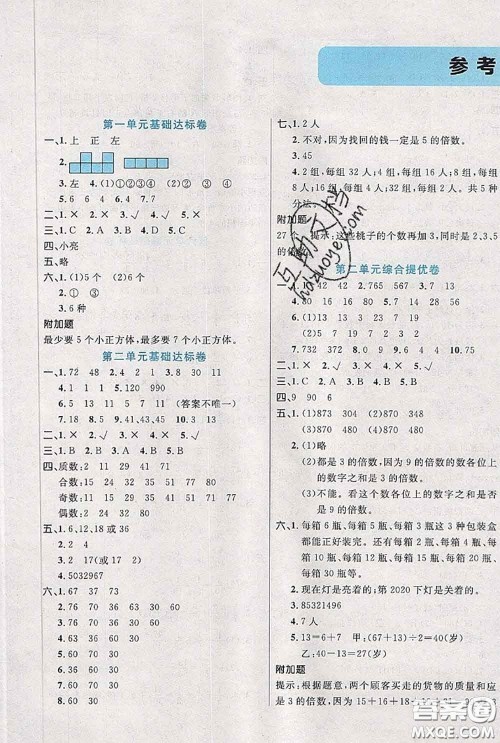 参考
第一单元基础达标卷
一、1.上 正 左
2.
3.左 4.(1)①③④ (2)① (3)④
二、1.× 2.× 3.√
三、1.C 2.A 3.B
四、小亮
五、略
六、1.(1)5个 (2)5个
2.① ①
3.6种
附加题
最少要5个小正方体，最多要7个小正方体。
第二单元基础达标卷
一、1.72 48 2.4 2 1 3.8 30 11
4.1 1 11 5.120 990
6.9 8 7.5 9 8.41,43,45 9.13 3
10.5 11 30 60 (答案不唯一)
二、1.× 2.√ 3.× 4.× 5.√
三、1.B 2.B 3.A 4.C 5.C
四、质数:2 11 41 37
合数:76 51 57 24 91
奇数:11 41 51 57 37 91
偶数:2 76 24
五、1.6,12,18或36
2.2
3.2 17(或17 2)
4.5032967
六、1.67 37 73
2.76 70 36 30 60
3.70 30 60
4.76 36 63
5.60 30
6.70 60 30
7.36 63 30 60
8.30 60
七、1.2人
2.不对，因为找回的钱一定是5的倍数。
3.45
4.2组，每组32人；4组，每组16人；8组，每组
8人；16组，每组4人；32组，每组2人。共5种
分法。
附加题
27个 提示：这些桃子的个数再加3，是2、3、5
的倍数。
第二单元综合提优卷
一、1.15 32 42 765 567 2.13
3.7 1 4 2 3 9 4.16 17 18
5.80 16 57 8 6.15 90
7.732 8.372 9.4 870 10.5
二、1.× 2.√ 3.× 4.√ 5.×
三、1.C 2.B 3.B 4.A 5.C
四、9 90 6
五、1.(1)873 (2)304 (3)430
(4)873 (5)430 (6)340
2.(1)略
(2)都是3的倍数，因为9的倍数的数各位上
的数字之和是3的倍数。
(3)不能。看这个数各位上的数字之和是否
是9的倍数。
六、1.每箱4瓶、每箱5瓶、每箱6瓶这3种包装盒
都能正好装完。还可以每箱2瓶、每箱3瓶、每
箱10瓶、每箱12瓶、每箱15瓶、每箱20瓶、
每箱30瓶等。
2.现在灯是亮着的；第2020下灯是关着的。
3.85321496
4.7人
5.13=6+7 甲:(67+13)÷2=40(岁)
乙:40-13=27(岁)
附加题
提示：根据题意，两个顾客买走的货物的质量和应
是3的倍数，因为15+16+18+
互助文档
hdzuoye.com
答案圈
MXQE.COM